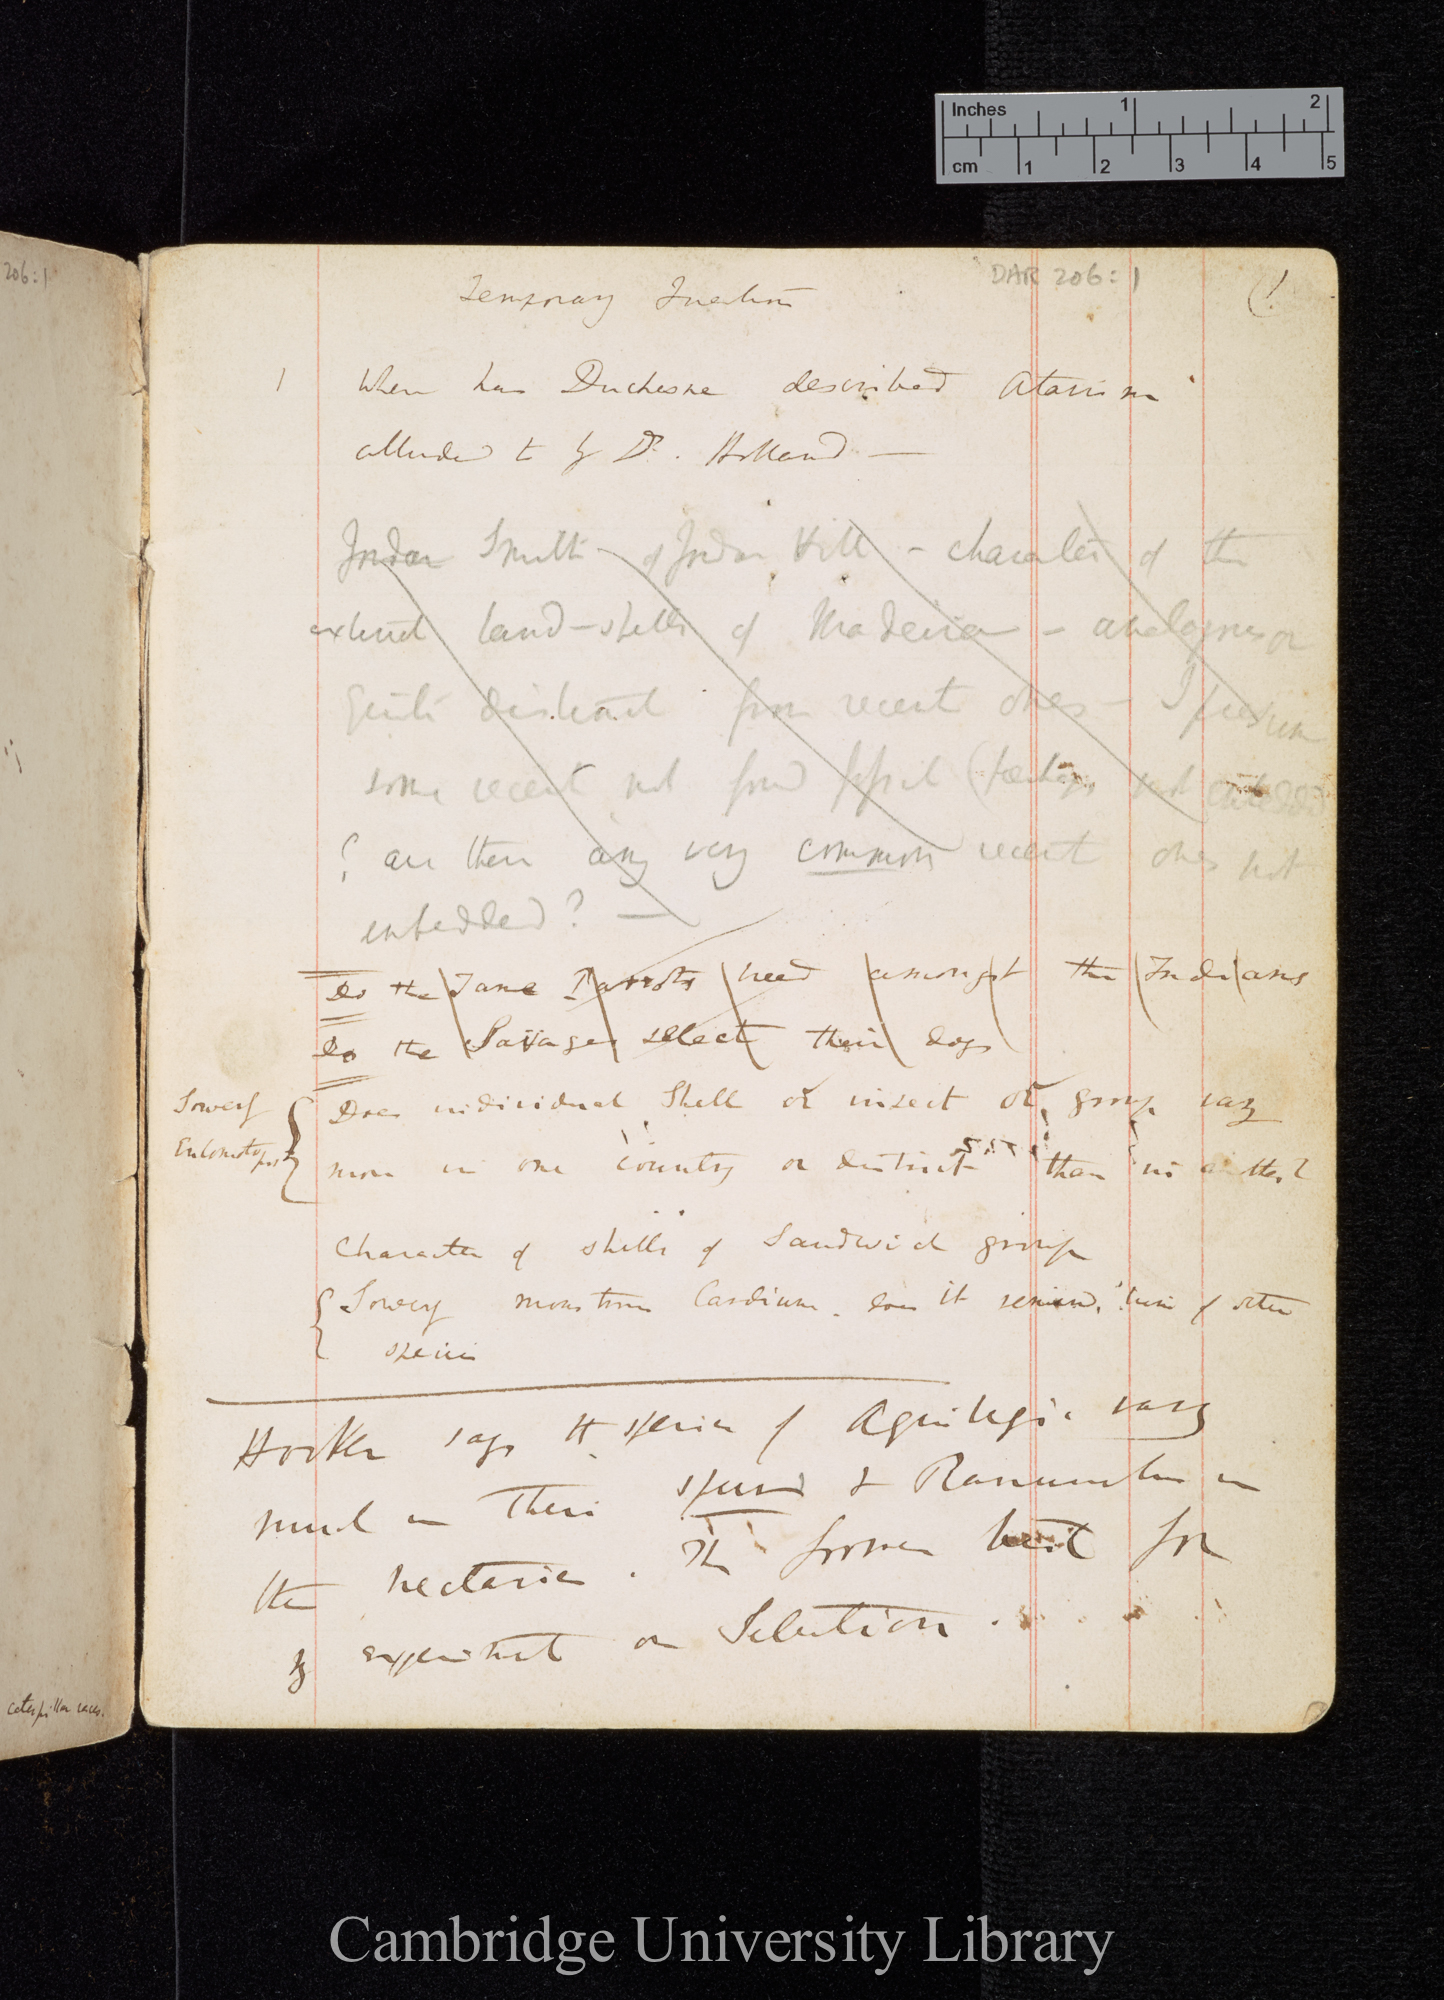 Inches 1 2
cm 1 2 3 4 5
206:1
DAR 206:1
(1
Temporary Questions
1 Where has Duchesne described Atavism
alluded to by Dr. Holland —
Jordan Smith of Jordan Hill - character of the
extinct land-shells of Madeira - analogous or
quite distinct from recent ones - I presume
some recent not found fossil (perhaps not embedded
? are there any very common recent ones not
embedded? —
Do the Tame Parrots breed amongst the Indians
Do the Savages select their dogs
Sowerby
Entomologist
Does individual Shell or insect or group vary
more in one country or district than in another?
Character of shells of Sandwich group
Sowerby monstrous Cardium. does it remind him of other
species
Hooker says the species of Aquilegia vary
much in their spurs & Ranunculus in
the nectaries. The former best for
experiment on Selection.
caterpillar races.
Cambridge University Library